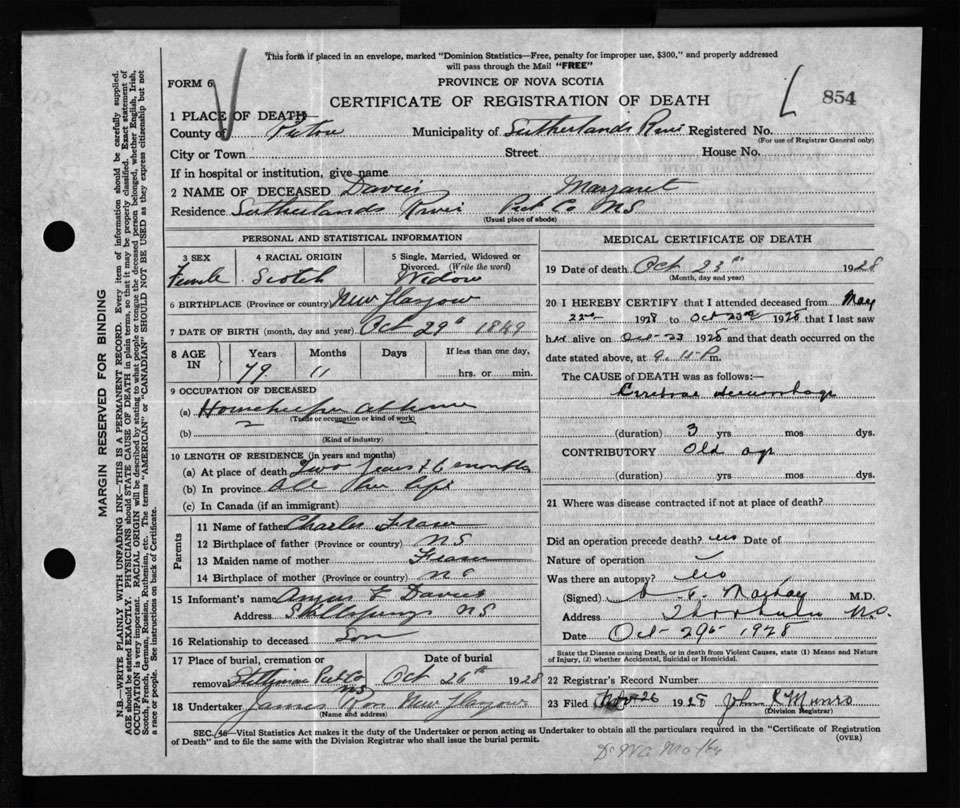 This form if placed in an envelope, marked "Dominion Statistics—Free, penalty for improper use, $300," and properly addressed
will pass through the Mail "FREE"
FORM 6
PROVINCE OF NOVA SCOTIA
CERTIFICATE OF REGISTRATION OF DEATH
854
1 PLACE OF DEATH
County of Pictou Municipality of Sutherlands River Registered No.
(For use of Registrar General only)
City or Town Street House No.
If in hospital or institution, give name
2 NAME OF DECEASED Davies Margaret
Residence Sutherlands River Pict Co NS
(Usual place of abode)
PERSONAL AND STATISTICAL INFORMATION
3 SEX 4 RACIAL ORIGIN 5 Single, Married, Widowed or
Divorced. (Write the word)
Female Scotch Widow
6 BIRTHPLACE (Province or country) New Glasgow
7 DATE OF BIRTH (month, day and year) Oct 29th 1849
8 AGE IN Years Months Days If less than one day,
79 11 hrs. or min.
9 OCCUPATION OF DECEASED
(a) Housekeeper at home
(Trade or occupation or kind of work)
(b)
(Kind of industry)
10 LENGTH OF RESIDENCE (in years and months)
(a) At place of death Two years & 6 months
(b) In province All her life
(c) In Canada (if an immigrant)
Parents
11 Name of father Charles Fraser
12 Birthplace of father (Province or country) NS
13 Maiden name of mother Fraser
14 Birthplace of mother (Province or country) NS
15 Informant's name Angus F Davies
Address NS
16 Relationship to deceased Son
17 Place of burial, cremation or removal Date of burial
Pict Co NS Oct 26th 1928
18 Undertaker James New Glasgow
(Name and address)
MEDICAL CERTIFICATE OF DEATH
19 Date of death Oct 23rd 1928
(Month, day and year)
20 I HEREBY CERTIFY that I attended deceased from May
22nd 1928 to Oct 23rd 1928 that I last saw
her alive on Oct 23 1928 and that death occurred on the
date stated above, at 9.11 P.m.
The CAUSE OF DEATH was as follows:—
Cerebral Hemorrhage
(duration) 3 yrs mos dys.
CONTRIBUTORY Old age
(duration) yrs mos dys.
21 Where was disease contracted if not at place of death?
Did an operation precede death? no Date of
Nature of operation
Was there an autopsy? no
(Signed) MacKay M.D.
Address Thorburn N.S.
Date Oct 29th 1928
State the Disease causing Death, or in death from Violent Causes, state (1) Means and Nature
of Injury, (2) whether Accidental, Suicidal or Homicidal.
22 Registrar's Record Number
23 Filed Nov 26 1928 John R Munro
(Division Registrar)
SEC. 36—Vital Statistics Act makes it the duty of the Undertaker or person acting as Undertaker to obtain all the particulars required in the "Certificate of Registration
of Death" and to file the same with the Division Registrar who shall issue the burial permit.
(OVER)
MARGIN RESERVED FOR BINDING
N.B.—WRITE PLAINLY WITH UNFADING INK—THIS IS A PERMANENT RECORD. Every item of information should be carefully supplied.
AGE should be stated EXACTLY. PHYSICIANS should STATE CAUSE OF DEATH in plain terms, so that it may be properly classified. Exact statement of
OCCUPATION is very important. RACIAL ORIGIN will be described by stating to what people or tongue the deceased person belonged, whether English, Irish,
Scotch, French, German, Russian, Ruthenian, etc. The terms "AMERICAN" or "CANADIAN" SHOULD NOT BE USED as they express citizenship but not
a race or people. See instructions on back of Certificate.